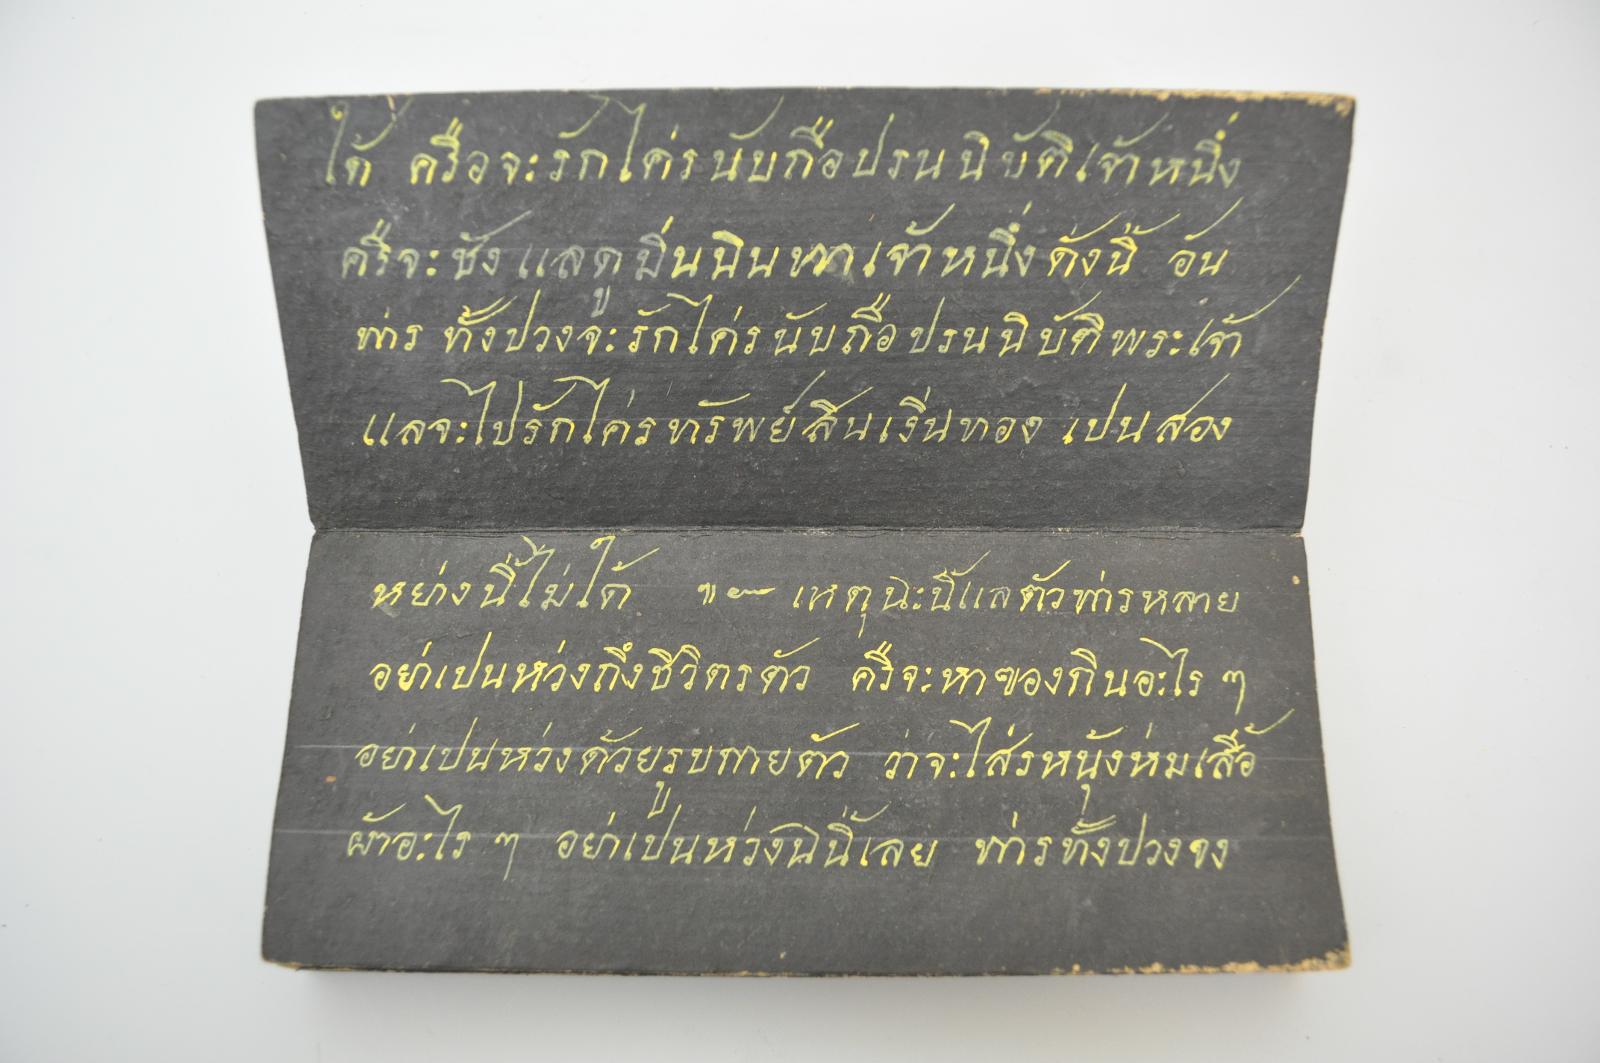 ได้ ครือจะรักไค่รนับถือปรนนิบัติเจ้าหนึ่ง
ครืจะชังแลดูมิ่นนินทาเจ้าหนึ่งดั่งนี้ อัน
ท่าร ทั้งปวงจะรักไค่รนับถือปรนนิบัติพระเจ้า
แลจะไปรักไค่รทรัพย์สินเงินทอง เปนสอง
หย่างนี้ไม่ได้ ฯ เหตุฉะนี้แลตัวท่ารหลาย
อย่าเปนห่วงถึงชีวิตรตัว ครืจะหาของกินอะไร ๆ
อย่าเปนห่วงด้วยรูบกายตัว ว่าจะไส่รหนุ้งห่มเสื้อ
ผ้าอะไร ๆ อย่าเปนห่วงนินี้เลย ท่ารทั้งปวงจง